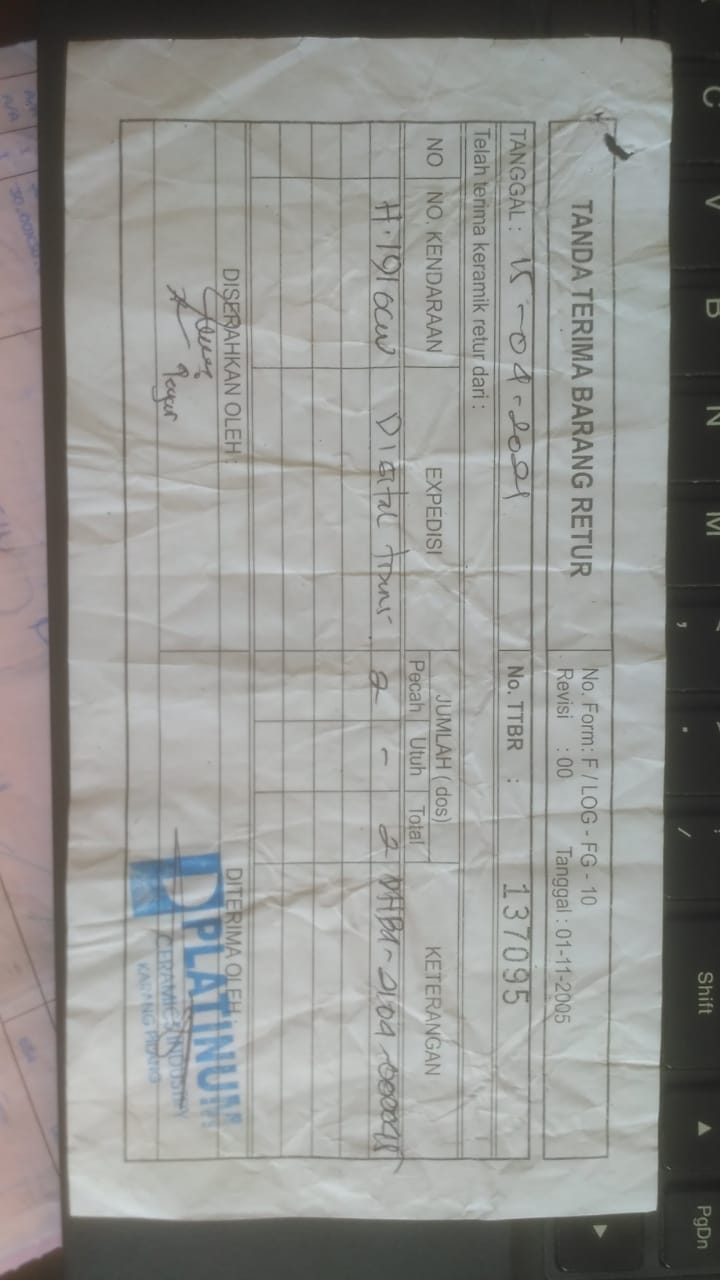 TANDA TERIMA BARANG RETUR
No. Form: F / LOG - FG - 10
Revisi : 00 Tanggal : 01-11-2005
TANGGAL : 15-04-2021
No. TTBR : 137095
Telah terima keramik retur dari :
NO NO. KENDARAAN EXPEDISI JUMLAH ( dos) KETERANGAN
Pecah Utuh Total
H.1910CW Digital trans 2 - 2
DISERAHKAN OLEH :
DITERIMA OLEH :
PLATINUM
CERAMICS INDUSTRY
KARANG PILANG
C V B N M , . / Shift ▲ PgDn